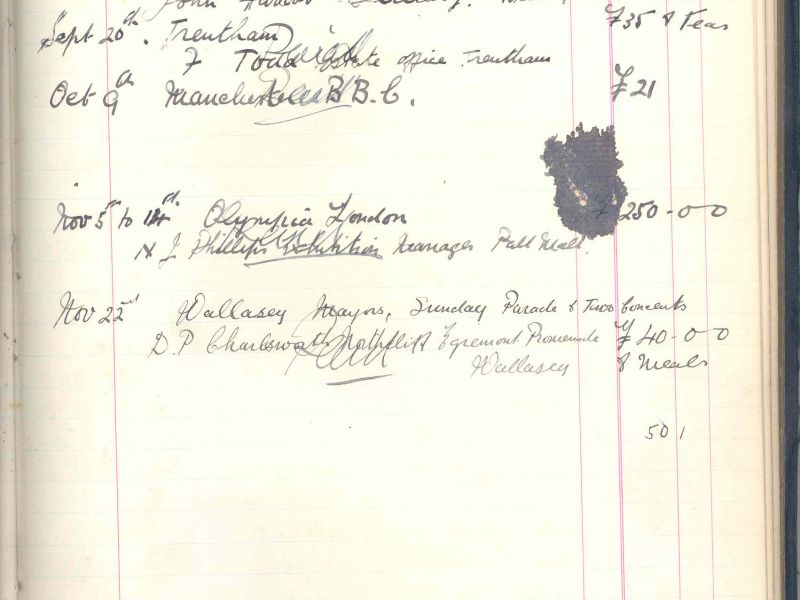 John Secretary.
£35 & Teas
Sept 20th. Trentham
F Todd Estate office Trentham
Oct 9th Manchester B.B.C. £21
Nov 5th to 14th Olympia London £250-0-0
J. Phillips Exhibition Manager Pall Mall.
Nov 22nd Wallasey Mayors, Sunday Parade & Two Concerts
D. P Charlesworth Northcliff Egremont Promenade £40-0-0
Wallasey & Meals
501